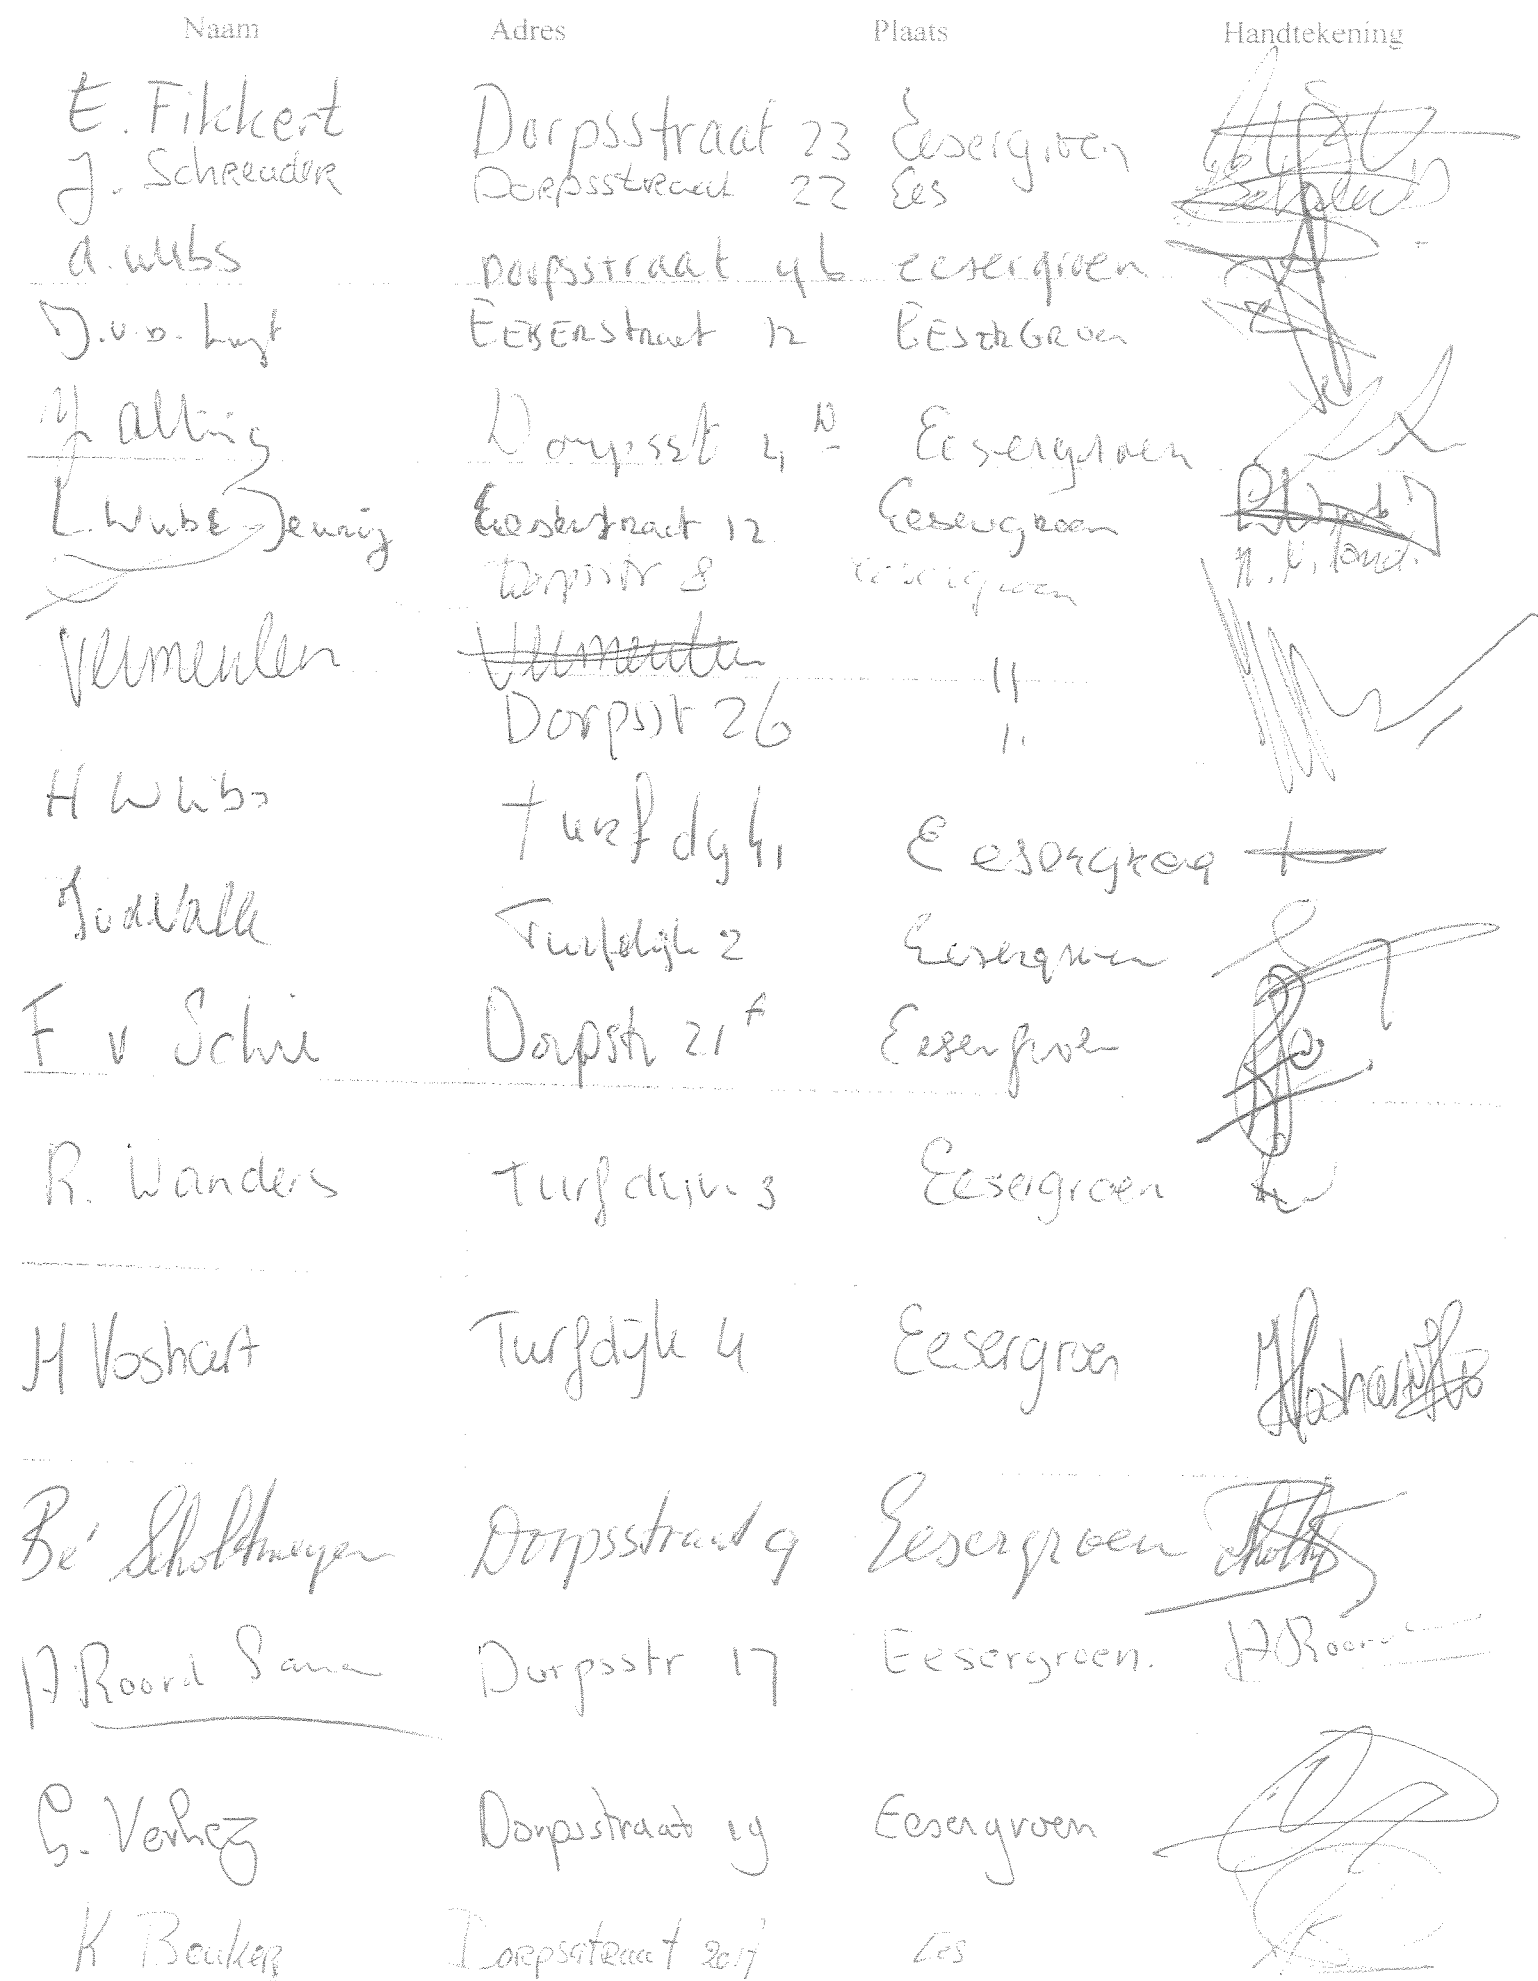 Naam Adres Plaats Handtekening
E. Fikkert Dorpsstraat 23 Eesergroen
J. Schreuder Dorpsstraat 22 Ees
A. Wubs Dorpsstraat 4b eesergroen
J.v.d. Eeserstraat 12 EESERGROEN
Alting Dorpsst 4 Eesergroen
L. Wubs Jeuring Eeserstraat 12 Eesergroen
Dorpsstr 8 Eesergroen
Vermeulen Vermeulen "
Dorpsstr 26 "
H Wubs Turfdijk 1 Eesergroen
J v d Valk Turfdijk 2 Eesergroen
F v Schie Dorpstr 21A Eesergroen
R. Wanders Turfdijk 3 Eesergroen
H Voshart Turfdijk 4 Eesergroen HVoshart
Bé Scholtmeyer Dorpsstraat 9 Eesergroen
A Roord Dorpsstr 17 Eesergroen. A Roord
G. Verheij Dorpsstraat 19 Eesergroen
K Beuker Dorpsstraat Ees